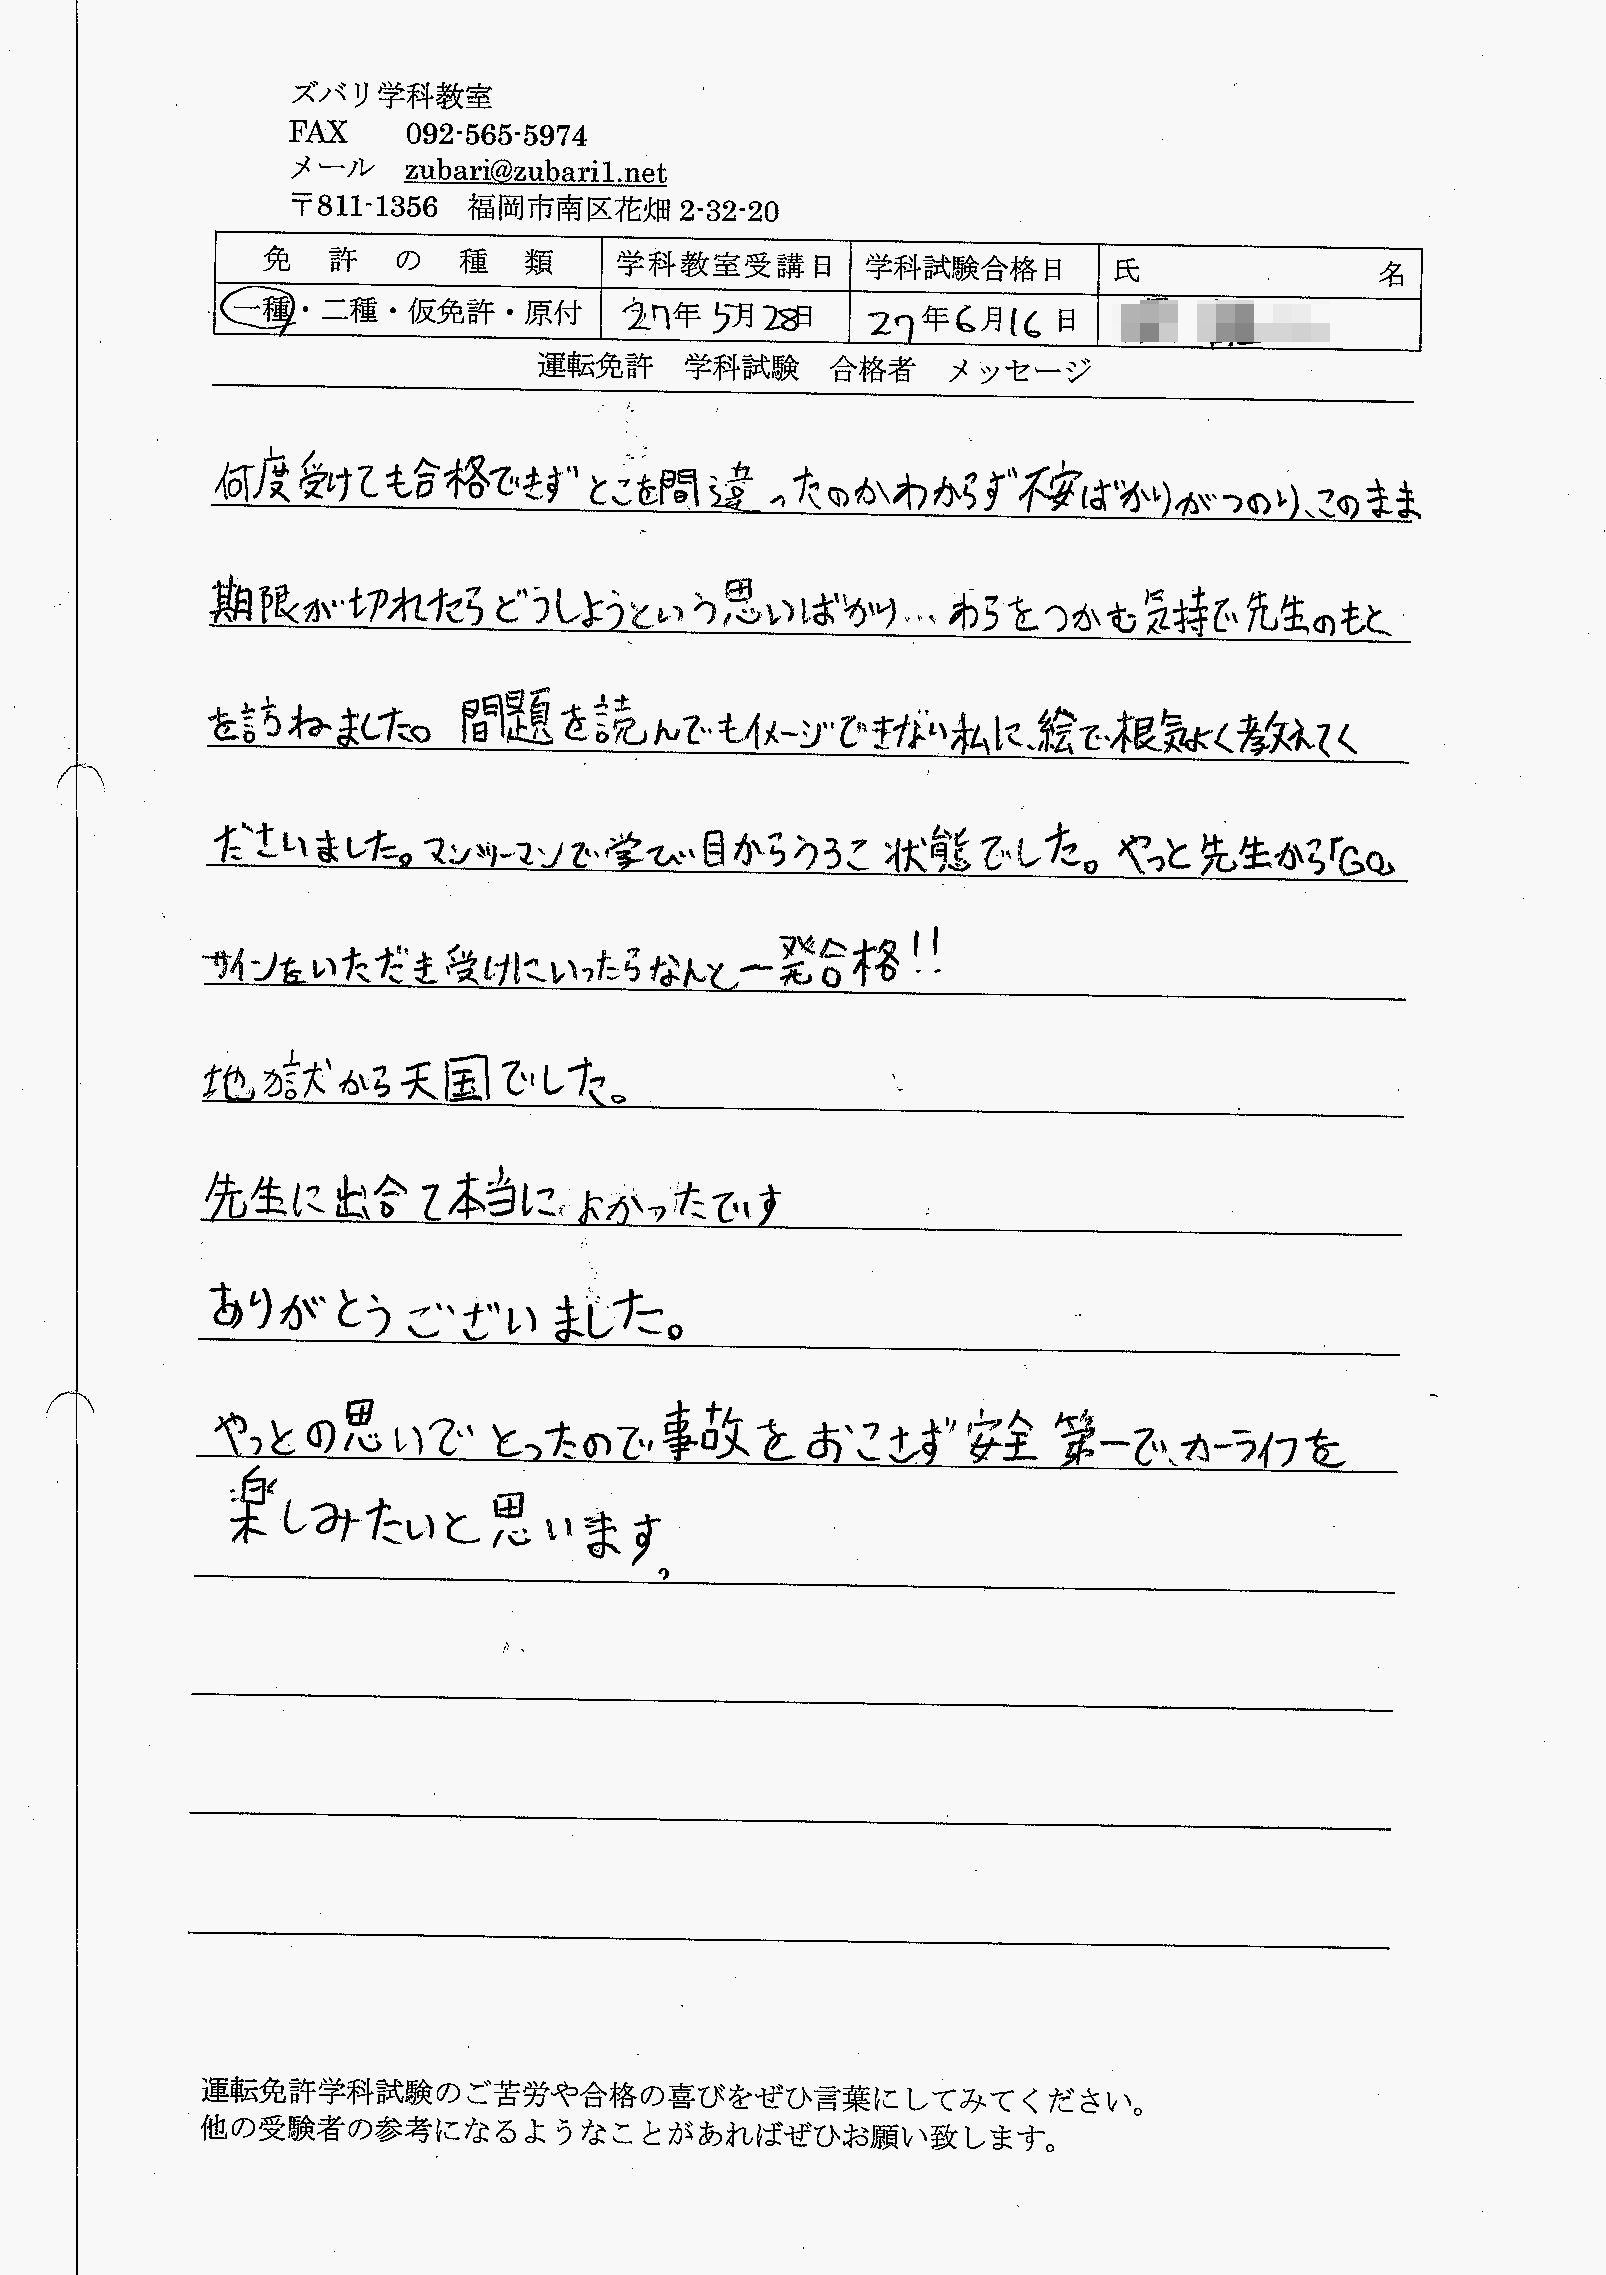 ズバリ学科教室
FAX 092-565-5974
メール zubari@zubari1.net
〒811-1356 福岡市南区花畑 2-32-20
免許の種類 学科教室受講日 学科試験合格日 氏名
一種・二種・仮免許・原付 27年5月28日 27年6月16日
運転免許 学科試験 合格者 メッセージ
何度受けても合格できずどこを間違ったのかわからず不安ばかりがつのり、このまま
期限が切れたらどうしようという思いばかり…わらをつかむ気持で先生のもと
を訪ねました。問題を読んでもイメージできない私に、絵で根気よく教えてく
ださいました。マンツーマンで学び目からうろこ状態でした。やっと先生から「GO」
サインをいただき受けにいったらなんと一発合格!!
地獄から天国でした。
先生に出合て本当によかったです
ありがとうございました。
やっとの思いでとったので事故をおこさず安全第一で、カーライフを
楽しみたいと思います。
運転免許学科試験のご苦労や合格の喜びをぜひ言葉にしてみてください。
他の受験者の参考になるようなことがあればぜひお願い致します。